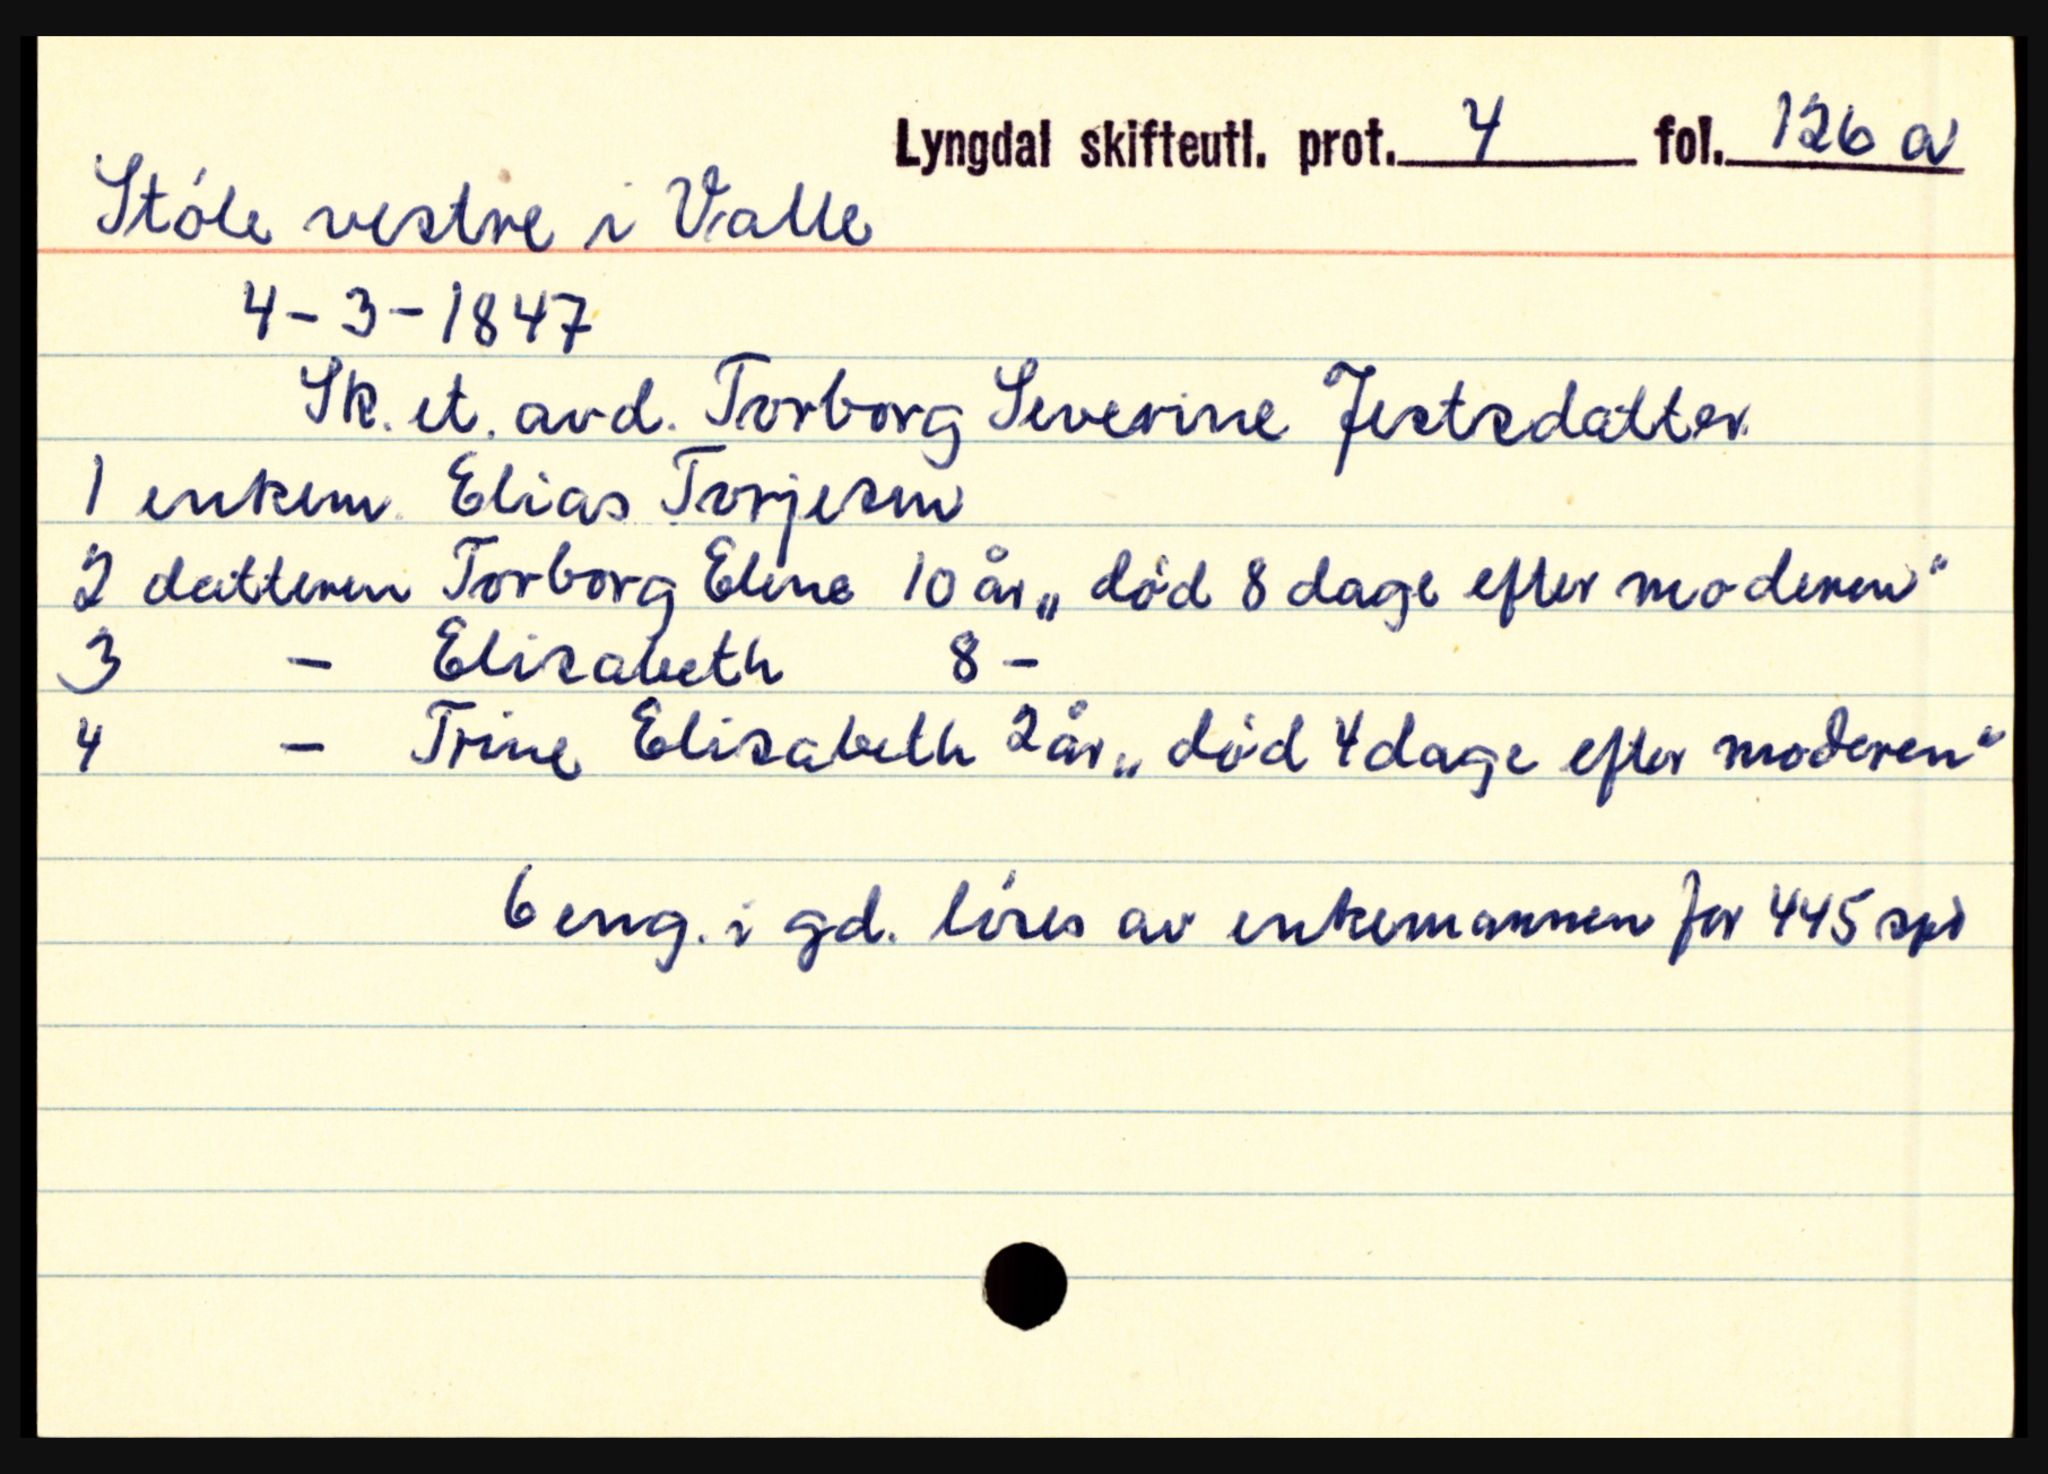 Lyngdal skifteutl. prot. 4 fol. 126 a
Støle vestre i Valle
4-3-1847
Sk. et. avd. Torborg Severine Jestsdatter.
1 enkem. Elias Torjesen
2 datteren Torborg Elene 10 år „død 8 dage efter moderen“
3 - Elisabeth 8 -
4 - Trine Elisabeth 2 år „død 4 dage efter moderen“
6 eng. i gd. løses av enkemannen for 445 spd